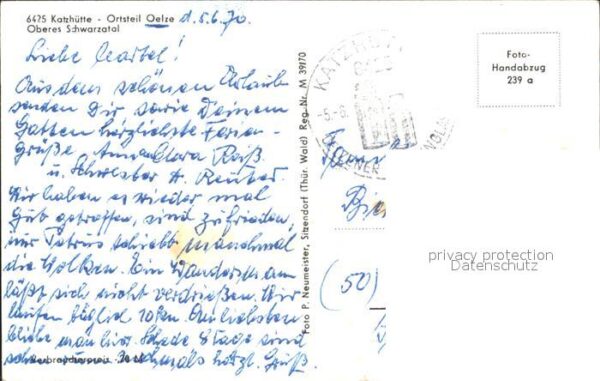 6425 Katzhütte - Ortsteil Oelze d. 5.6.70.
Oberes Schwarzatal
Liebe
Aus dem schönen Urlaub
senden Dir, sowie Deinem
Gatten herzlichste Ferien-
Grüße, Anna Clara Reiß
u. Schwester A. Reuter.
Wir haben es wieder mal
gut getroffen, sind zufrieden,
nur Petrus schiebt manchmal
die Wolken. Ein Wandersmann
läßt sich nicht verdrießen. Wir
laufen täglich 10 km. Am liebsten
bliebe man hier. Schade 8 Tage sind
schon um. Nochmals herzl. Grüße.
Verbraucherpreis
Foto P. Neumeister, Sitzendorf (Thür. Wald) Reg. Nr. M 39/70
KATZHÜ
-5.6.
Foto-
Handabzug
239 a
(50)
privacy protection
Datenschutz